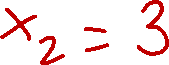 x₂ = 3